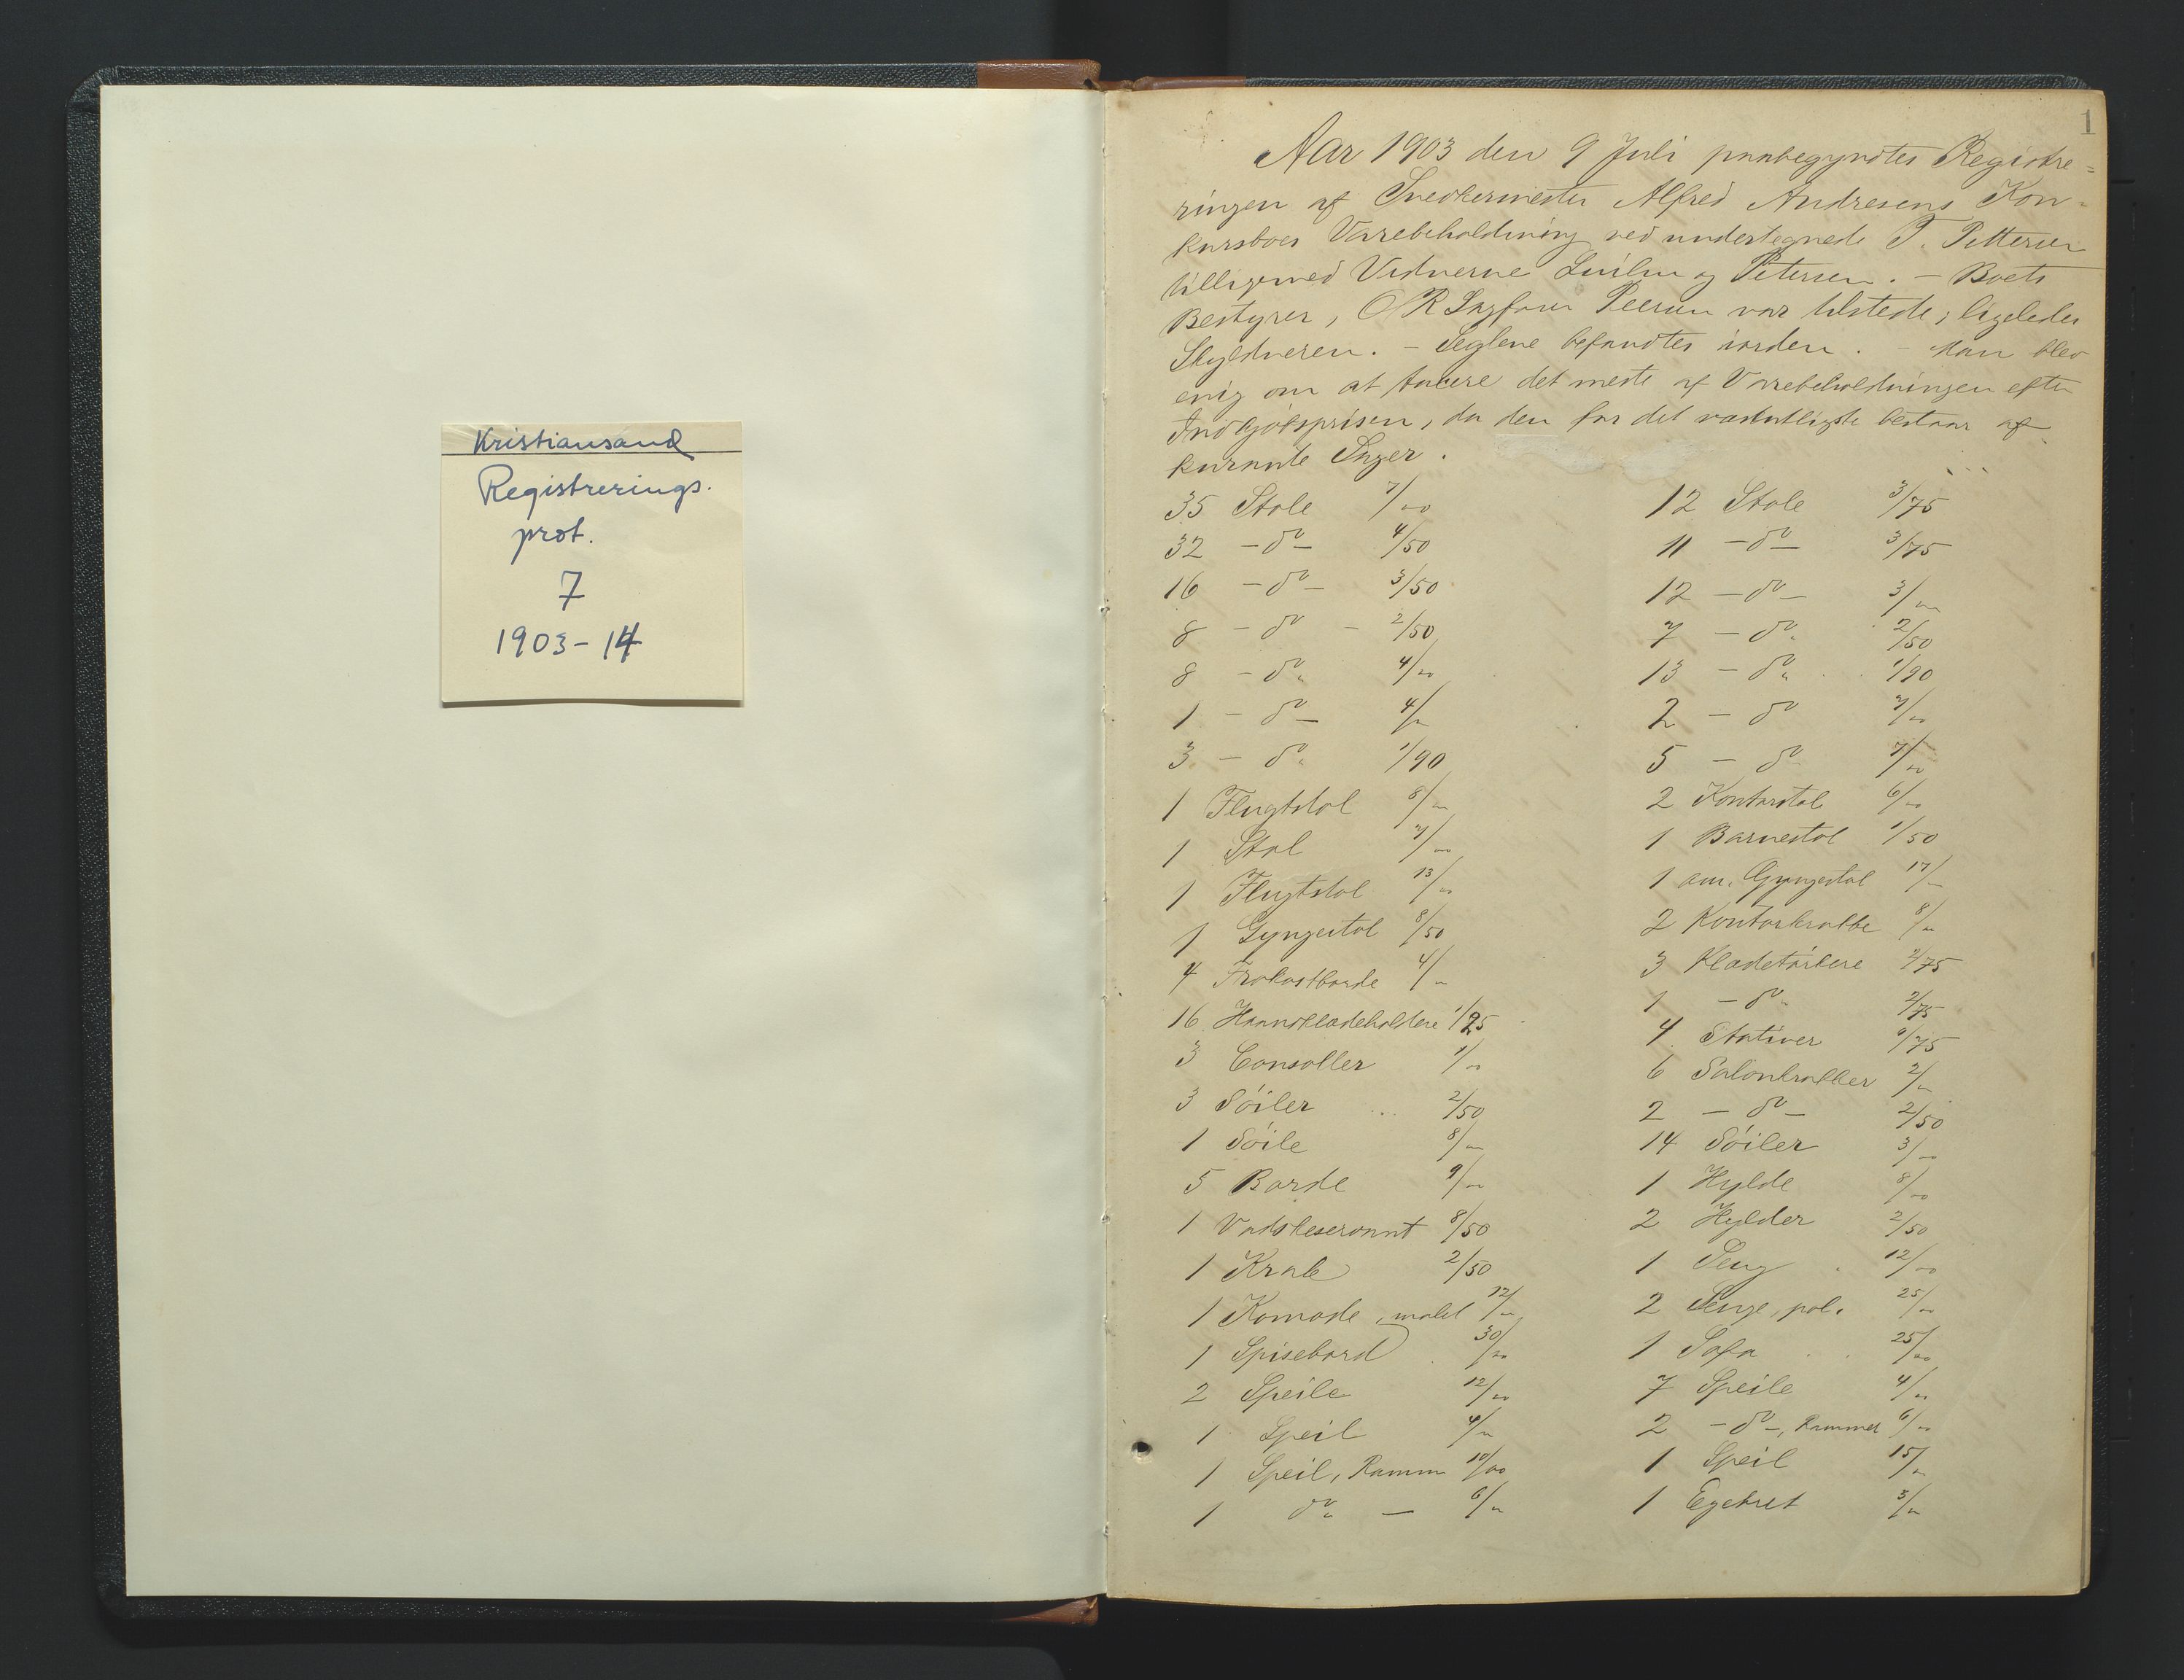 Kristiansand
Registrerings.
prot.
7
1903-14
1
Aar 1903 den 9 Juli paabegyndtes Registre=
ringen af Snedkermester Alfred Andresens Kon-
kursboes Varebeholdning ved undertegnede T. Pettersen
tilligemed Vidnerne og Petersen. - Boets
Bestyrer, O R Sagfører var tilstede; ligeledes
Skyldneren. - Seglene befandtes iorden. - Man blev
enig om at taxere det meste af Varebeholdningen efter
Indkjøbsprisen, da den for det væsentligste bestaar af
kurante Sager.
35 Stole 7/00
32 -do- 4/50
16 -do- 3/50
8 -do- 2/50
8 -do„ 4/00
1 -do- 4/00
3 -do„ 1/90
1 Flugtstol 8/00
1 Stol 7/00
1 Flugtstol 13/00
1 Gyngestol 8/50
4 Frokostborde 4/00
16 Haandklædeholdere 1/25
3 Consoller 1/00
3 Søiler 2/50
1 Søile 8/00
5 Borde 9/00
1 Vadskeservant 8/50
1 2/50
1 Komode, malet 12/00
1 Spisebord 30/00
2 Speile 12/00
1 Speil 4/00
1 Speil, Ramme 10/00
1 do„ - 6/00
12 Stole 3/75
11 -do- 3/75
12 -do- 3/00
7 -do„ 2/50
13 -do„ 1/90
2 -do 7/00
5 -do 7/00
2 Kontorstol 6/00
1 Barnestol 1/50
1 am. Gyngestol 17/00
2 Kontorkrakke 8/00
3 Klædetørkere 2/75
1 -do„ 2/75
4 Stativer /75
6 Salonkrakker 2/00
2 -do- 2/50
14 Søiler 3/00
1 Hylde 8/00
2 Hylder 2/50
1 Seng 12/00
2 Senge, pol. 25/00
1 Sofa 25/00
7 Speile 4/00
2 -do-, Rammer 6/00
1 Speil 15/00
1 3/00